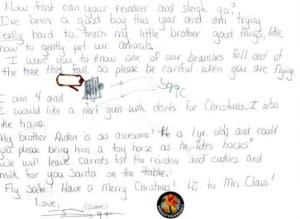 How fast can your reindeer and sleigh go?
I've been a good boy this year and am trying
really hard to teach my little brother good things, like
how to gently pet our animals.
I want you to know one of our branches fell out of
the tree this fall, so please be careful when you are flying.
I am 4 and
I would like a nerf gun with darts for Christmas. I also
like trains.
My brother Aiden is so awesome! He is 1 yr. old, and could
you please bring him a toy horse as he rides horses
We will leave carrots for the reindeer and cookies and
milk for you Santa on the table.
Fly safe! Have a Merry Christmas! Hi to Mrs. Claus!
Love,